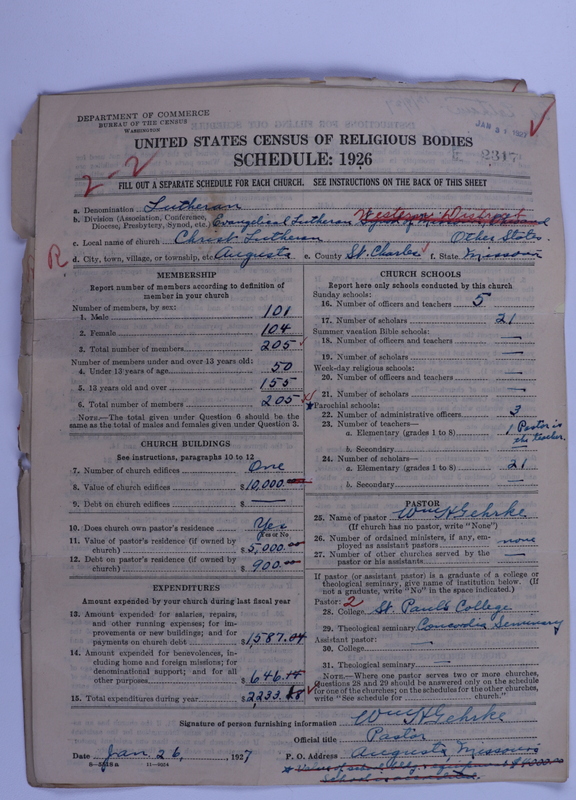 DEPARTMENT OF COMMERCE
BUREAU OF THE CENSUS
WASHINGTON
JAN 31 1927
UNITED STATES CENSUS OF RELIGIOUS BODIES
SCHEDULE: 1926
2317
2-2
FILL OUT A SEPARATE SCHEDULE FOR EACH CHURCH. SEE INSTRUCTIONS ON THE BACK OF THIS SHEET
a. Denomination Lutheran
b. Division (Association, Conference, Diocese, Presbytery, Synod, etc.) Evangelical Lutheran Synod of Missouri, Ohio and Other States.
Western District
c. Local name of church Christ Lutheran
R
d. City, town, village, or township, etc. Augusta e. County St. Charles f. State Missouri
MEMBERSHIP
Report number of members according to definition of
member in your church
Number of members, by sex:
1. Male 101
2. Female 104
3. Total number of members 205
Number of members under and over 13 years old:
4. Under 13 years of age 50
5. 13 years old and over 155
6. Total number of members 205
NOTE.—The total given under Question 6 should be
same as the total of males and females given under Question 3.
CHURCH BUILDINGS
See instructions, paragraphs 10 to 12
7. Number of church edifices One
8. Value of church edifices $10,000
9. Debt on church edifices $ —
10. Does church own pastor's residence Yes
(Yes or No)
11. Value of pastor's residence (if owned by
church) $5,000.
12. Debt on pastor's residence (if owned by
church) $900.
EXPENDITURES
Amount expended by your church during last fiscal year
13. Amount expended for salaries, repairs,
and other running expenses; for im-
provements or new buildings; and for
payments on church debt $1587.04
14. Amount expended for benevolences, in-
cluding home and foreign missions; for
denominational support; and for all
other purposes $646.44
15. Total expenditures during year $2233.
CHURCH SCHOOLS
Report here only schools conducted by this church
Sunday schools:
16. Number of officers and teachers 5
17. Number of scholars 21
Summer vacation Bible schools:
18. Number of officers and teachers —
19. Number of scholars —
Week-day religious schools:
20. Number of officers and teachers —
21. Number of scholars —
*Parochial schools:
22. Number of administrative officers 3
23. Number of teachers—
a. Elementary (grades 1 to 8) 1 Pastor is the teacher.
b. Secondary —
24. Number of scholars—
a. Elementary (grades 1 to 8) 21
b. Secondary $ —
PASTOR
25. Name of pastor Wm H Gehrke
(If church has no pastor, write "None")
26. Number of ordained ministers, if any, em-
ployed as assistant pastors none
27. Number of other churches served by the
pastor or his assistants —
If pastor (or assistant pastor) is a graduate of a college or
theological seminary, give name of institution below. (If
not a graduate, write "No" in the space indicated.)
Pastor: 2
28. College St. Paul's College
29. Theological seminary Concordia Seminary
Assistant pastor:
30. College —
31. Theological seminary —
NOTE.—Where one pastor serves two or more churches,
Questions 28 and 29 should be answered only on the schedule
for one of the churches; on the schedules for the other churches,
write "See schedule for church."
Signature of person furnishing information Wm H Gehrke
Official title Pastor
Date Jan. 26, 1927 P. O. Address Augusta, Missouri
8—5518 a 11—9624